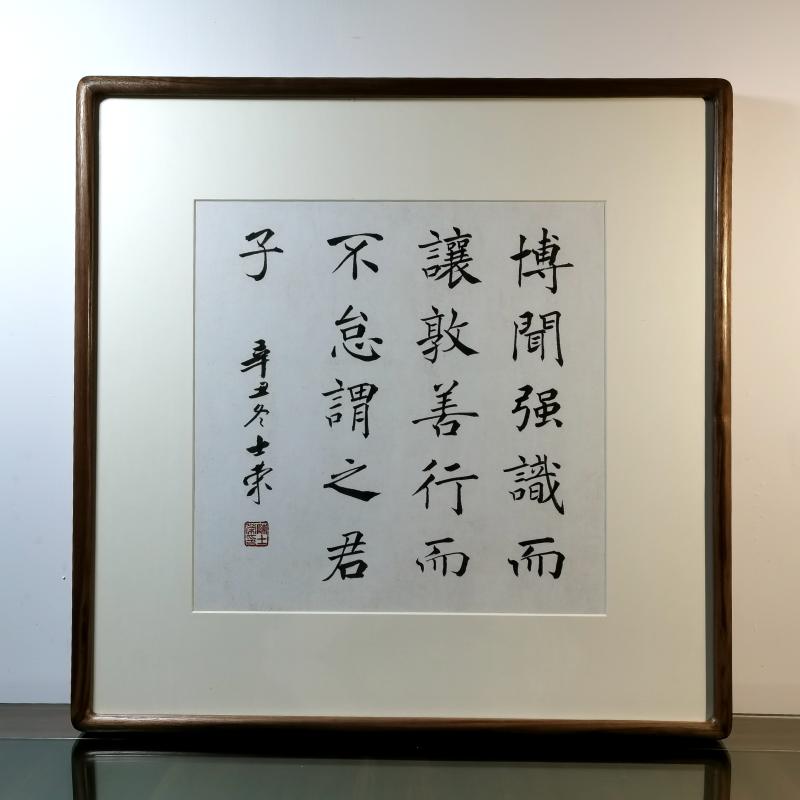 博聞强識而
讓敦善行而
不怠謂之君
子
辛丑冬士榮